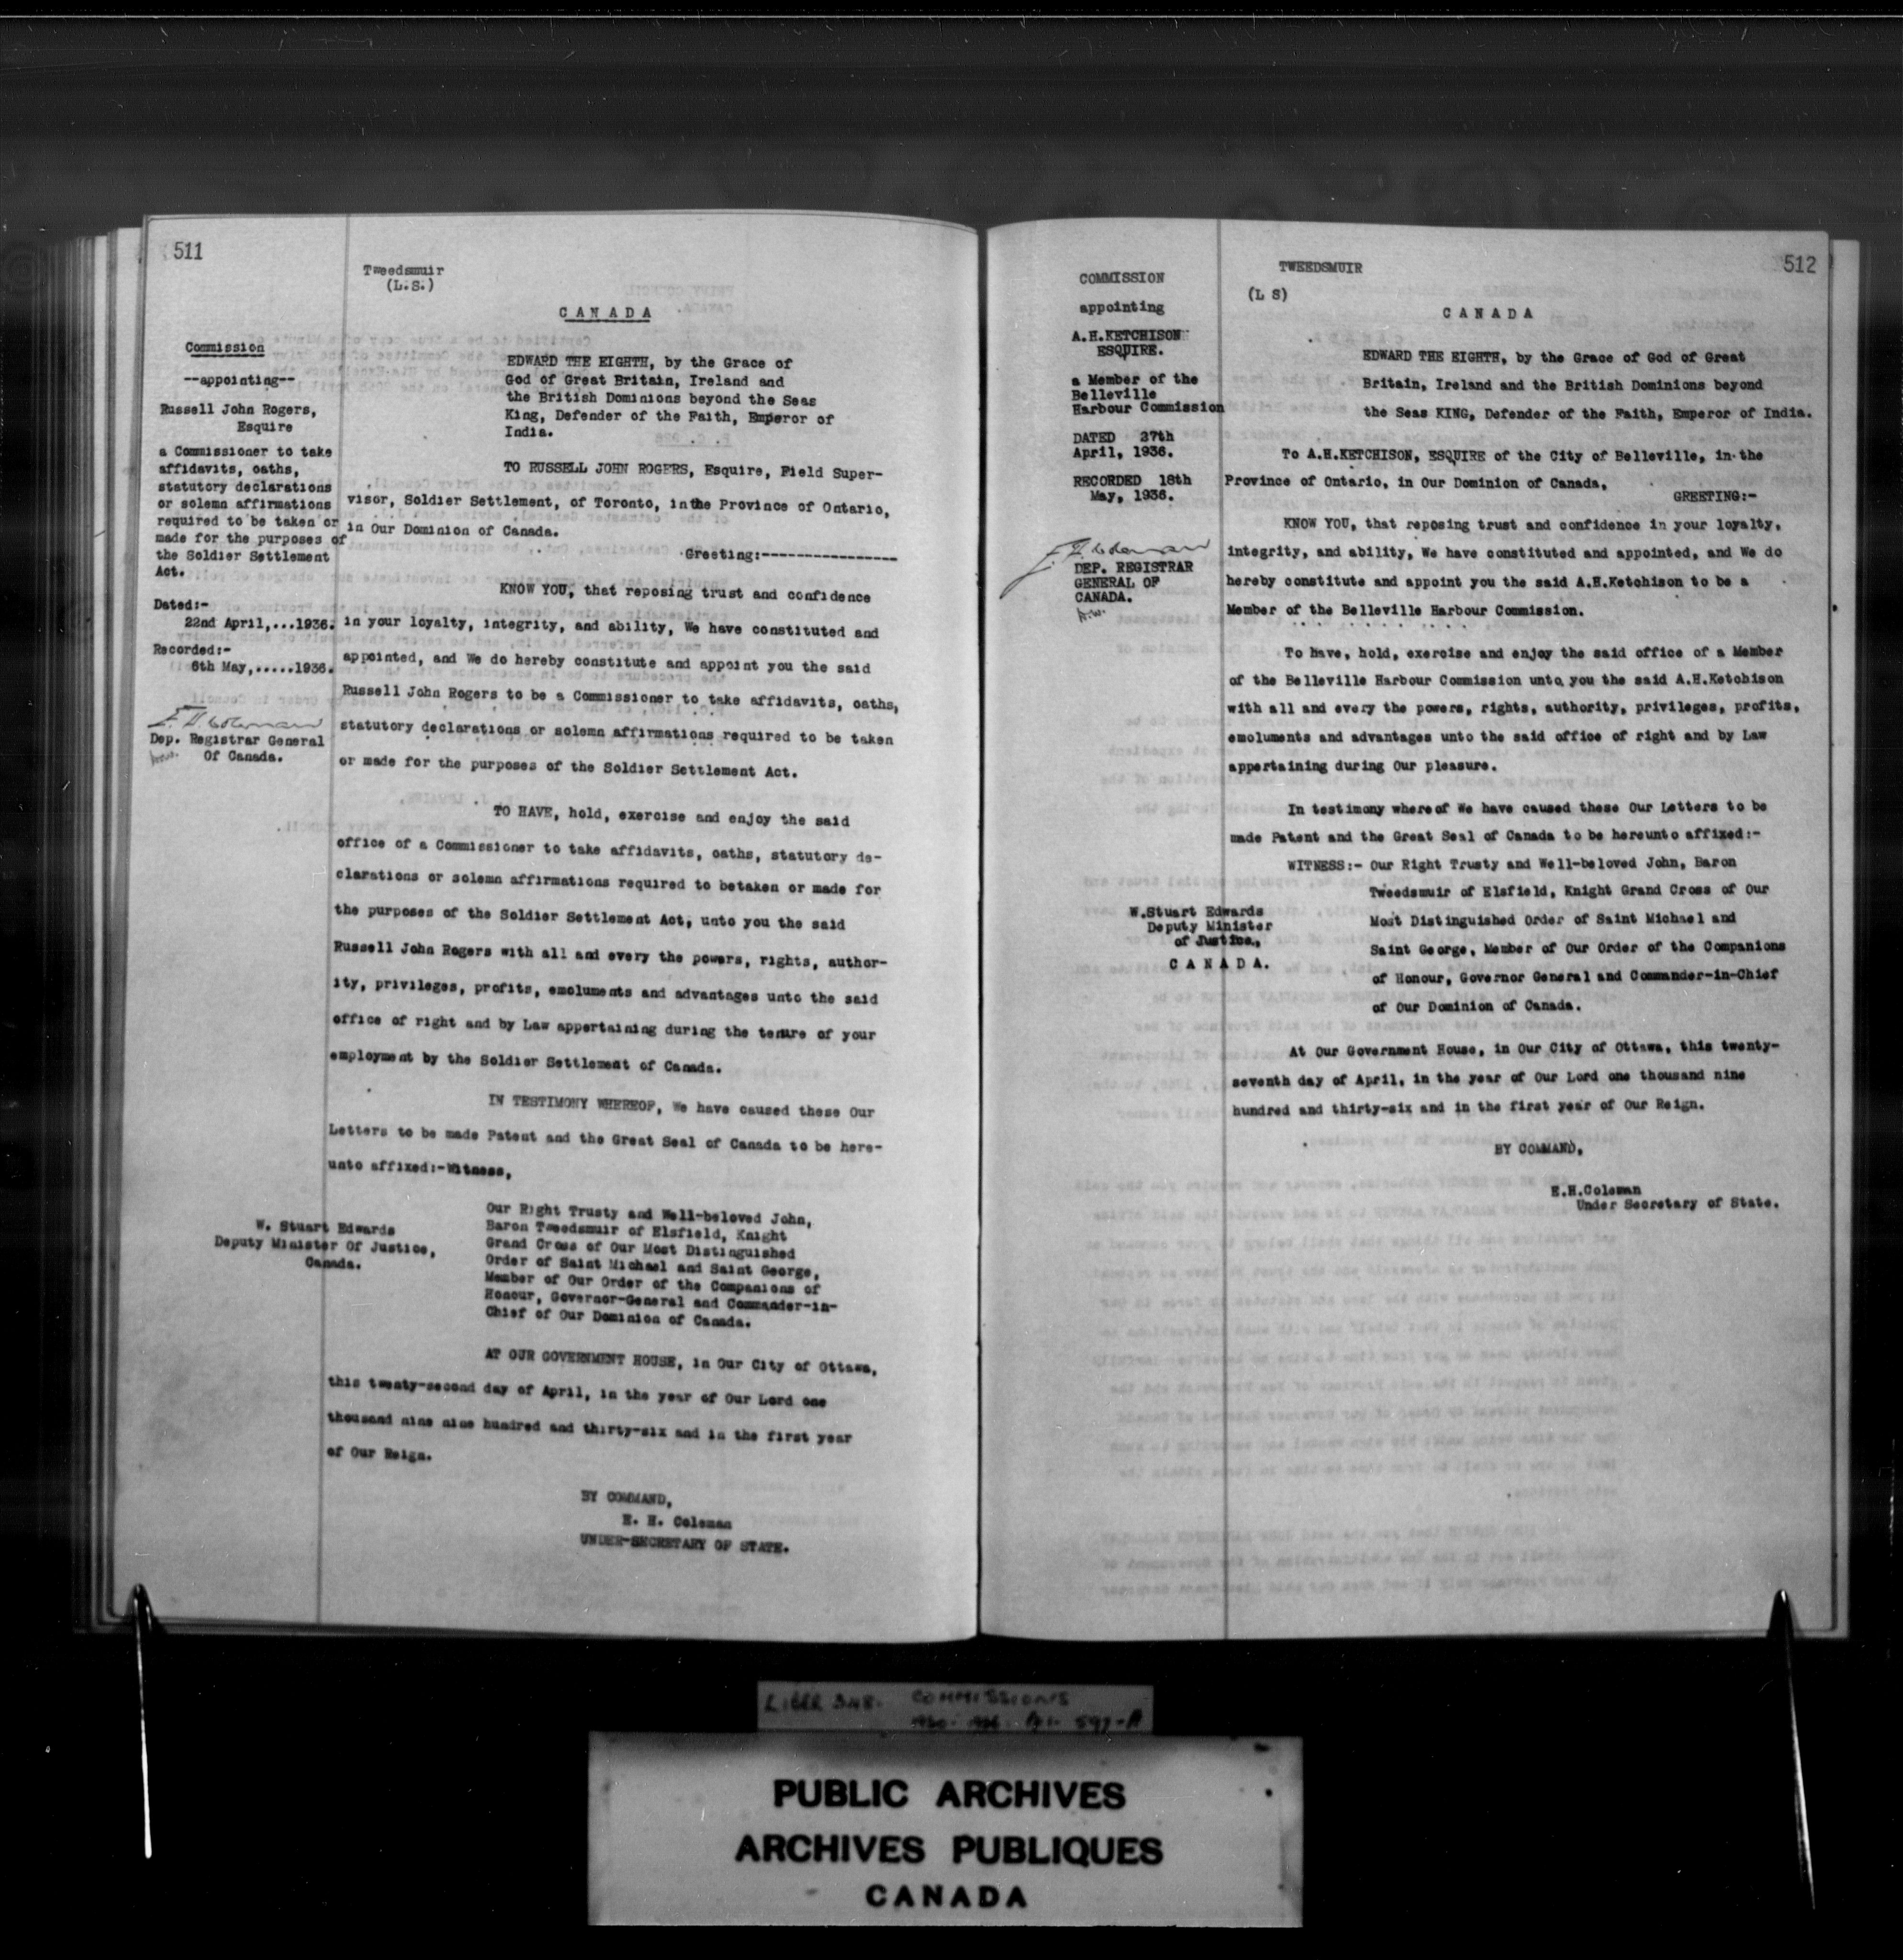 511
Tweedsmuir
(L.S.)
CANADA
Commission
--appointing--
Russell John Rogers,
Esquire
a Commissioner to take
affidavits, oaths,
statutory declarations
or solemn affirmations
required to be taken or
made for the purposes of
the Soldier Settlement
Act.
Dated:-
22nd April,...1936.
Recorded:-
6th May,.....1936.
Dep. Registrar General
Of Canada.
EDWARD THE EIGHTH, by the Grace of
God of Great Britain, Ireland and
the British Dominions beyond the Seas
King, Defender of the Faith, Emperor of
India.
TO RUSSELL JOHN ROGERS, Esquire, Field Super-
visor, Soldier Settlement, of Toronto, inthe Province of Ontario,
in Our Dominion of Canada.
Greeting:-----------------
KNOW YOU, that reposing trust and confidence
in your loyalty, integrity, and ability, We have constituted and
appointed, and We do hereby constitute and appoint you the said
Russell John Rogers to be a Commissioner to take affidavits, oaths,
statutory declarations or solemn affirmations required to be taken
or made for the purposes of the Soldier Settlement Act.
TO HAVE, hold, exercise and enjoy the said
office of a Commissioner to take affidavits, oaths, statutory de-
clarations or solemn affirmations required to betaken or made for
the purposes of the Soldier Settlement Act, unto you the said
Russell John Rogers with all and every the powers, rights, author-
ity, privileges, profits, emoluments and advantages unto the said
office of right and by Law appertaining during the tenure of your
employment by the Soldier Settlement of Canada.
IN TESTIMONY WHEREOF, We have caused these Our
Letters to be made Patent and the Great Seal of Canada to be here-
unto affixed:-Witness,
W. Stuart Edwards
Deputy Minister Of Justice,
Canada.
Our Right Trusty and Well-beloved John,
Baron Tweedsmuir of Elsfield, Knight
Grand Cross of Our Most Distinguished
Order of Saint Michael and Saint George,
Member of Our Order of the Companions of
Honour, Governor-General and Commander-in-
Chief of Our Dominion of Canada.
AT OUR GOVERNMENT HOUSE, in Our City of Ottawa,
this twenty-second day of April, in the year of Our Lord one
thousand nine nine hundred and thirty-six and in the first year
of Our Reign.
BY COMMAND,
E. H. Coleman
UNDER-SECRETARY OF STATE.
512
TWEEDSMUIR
(L S)
CANADA
COMMISSION
appointing
A.H.KETCHISON
ESQUIRE.
a Member of the
Belleville
Harbour Commission
DATED 27th
April, 1936.
RECORDED 18th
May, 1936.
DEP. REGISTRAR
GENERAL OF
CANADA.
EDWARD THE EIGHTH, by the Grace of God of Great
Britain, Ireland and the British Dominions beyond
the Seas KING, Defender of the Faith, Emperor of India.
To A.H.KETCHISON, ESQUIRE of the City of Belleville, in the
Province of Ontario, in Our Dominion of Canada,
GREETING:-
KNOW YOU, that reposing trust and confidence in your loyalty,
integrity, and ability, We have constituted and appointed, and We do
hereby constitute and appoint you the said A.H.Ketchison to be a
Member of the Belleville Harbour Commission.
To have, hold, exercise and enjoy the said office of a Member
of the Belleville Harbour Commission unto you the said A.H.Ketchison
with all and every the powers, rights, authority, privileges, profits,
emoluments and advantages unto the said office of right and by Law
appertaining during Our pleasure.
In testimony whereof We have caused these Our Letters to be
made Patent and the Great Seal of Canada to be hereunto affixed:-
WITNESS:- Our Right Trusty and Well-beloved John, Baron
Tweedsmuir of Elsfield, Knight Grand Cross of Our
Most Distinguished Order of Saint Michael and
Saint George, Member of Our Order of the Companions
of Honour, Governor General and Commander-in-Chief
of Our Dominion of Canada.
W.Stuart Edwards
Deputy Minister
of Justice,
CANADA.
At Our Government House, in Our City of Ottawa, this twenty-
seventh day of April, in the year of Our Lord one thousand nine
hundred and thirty-six and in the first year of Our Reign.
BY COMMAND,
E.H.Coleman
Under Secretary of State.
LIBER 348. COMMISSIONS
597-A
PUBLIC ARCHIVES
ARCHIVES PUBLIQUES
CANADA